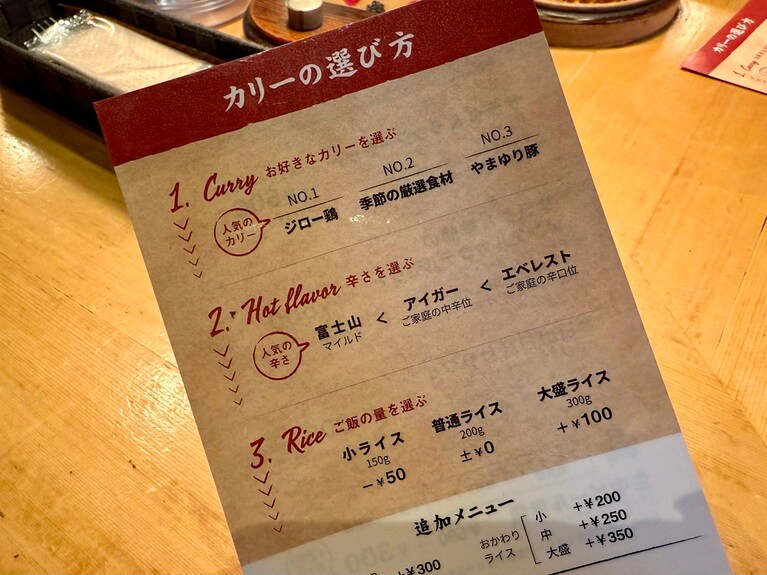 カリーの選び方
1. Curry お好きなカリーを選ぶ
人気の
カリー
NO.1
ジロー鶏
NO.2
季節の厳選食材
NO.3
やまゆり豚
2. Hot flavor 辛さを選ぶ
人気の
辛さ
富士山 < アイガー < エベレスト
マイルド
ご家庭の中辛位
ご家庭の辛口位
3. Rice ご飯の量を選ぶ
小ライス
150g
−¥50
普通ライス
200g
±¥0
大盛ライス
300g
+¥100
追加メニュー
+¥300
おかわり
ライス
小 +¥200
中 +¥250
大盛 +¥350
カリーの選び方
1. Curry